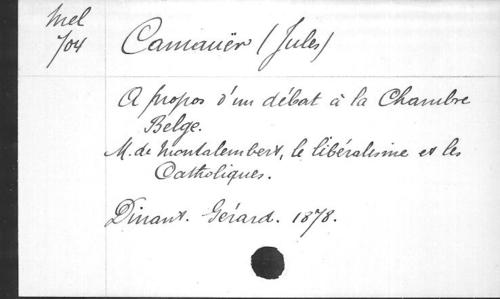 Mel
704
Camauër (Jules)
A propos d'un débat à la Chambre
Belge.
M. de Montalembert, le libéralisme et les
Catholiques.
Dinant. Gérard. 1878.